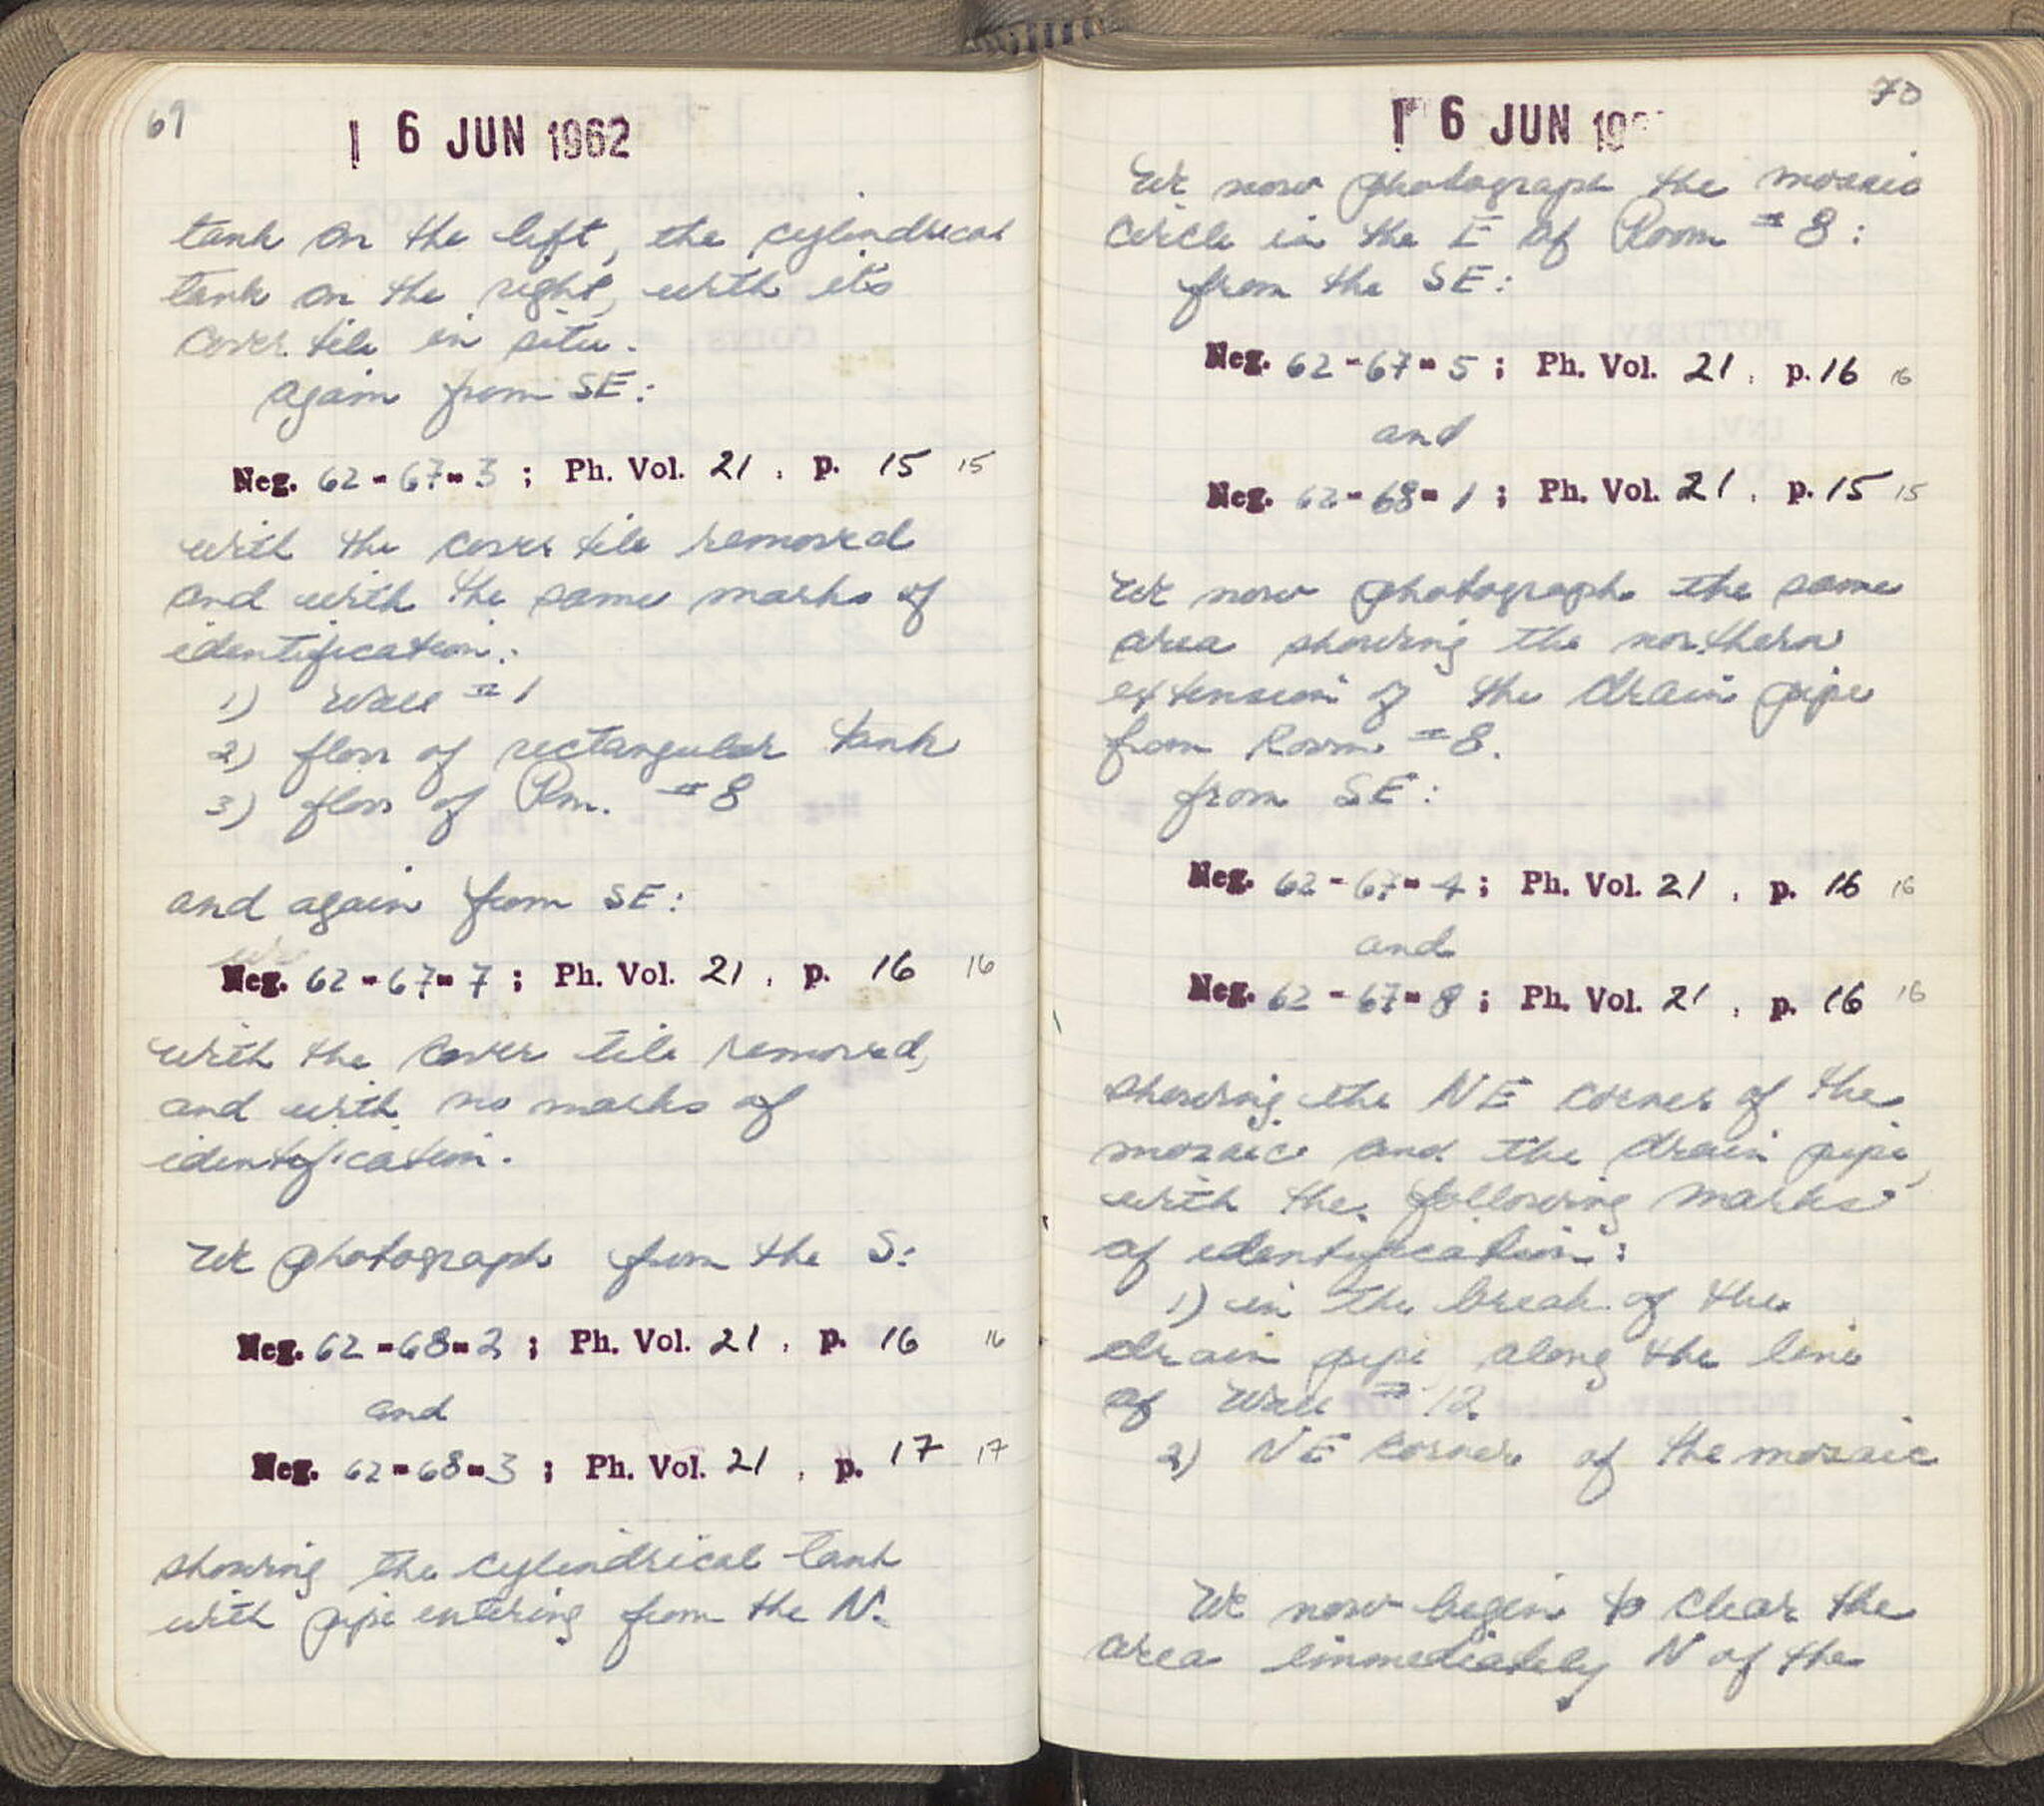 69
16 JUN 1962
tank on the left, the cylindrical
tank on the right, with its
cover tile in situ.
again from SE:
Neg. 62-67-3 ; Ph. Vol. 21 , p. 15 15
with the cover tile removed
and with the same marks of
identification:
1) Wall #1
2) floor of rectangular tank
3) floor of Rm. #8
and again from SE:
Neg. 62-67-7 ; Ph. Vol. 21 , p. 16 16
with the cover tile removed,
and with no marks of
identification.
We photograph from the S:
Neg. 62-68-2 ; Ph. Vol. 21 , p. 16 16
and
Neg. 62-68-3 ; Ph. Vol. 21 , p. 17 17
showing the cylindrical tank
with pipe entering from the N.
70
16 JUN 19
We now photograph the mosaic
circle in the E of Room #8:
from the SE:
Neg. 62-67-5 ; Ph. Vol. 21 , p. 16 16
and
Neg. 62-68-1 ; Ph. Vol. 21 , p. 15 15
We now photograph the same
area showing the northern
extension of the drain pipe
from Room #8.
from SE:
Neg. 62-67-4 ; Ph. Vol. 21 , p. 16 16
and
Neg. 62-67-8 ; Ph. Vol. 21 , p. 16 16
showing the NE corner of the
mosaic and the drain pipe,
with the following marks
of identification:
1) in the break of the
drain pipe along the line
of Wall #12
2) NE corner of the mosaic
We now begin to clear the
area immediately N of the